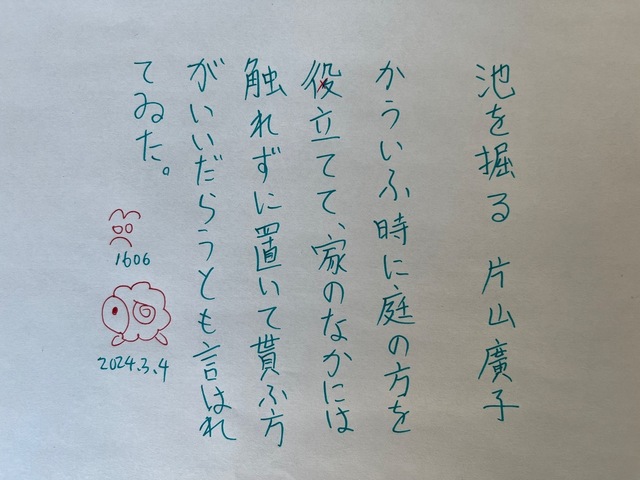 池を掘る 片山廣子
かういふ時に庭の方を
役立てて、家のなかには
触れずに置いて貰ふ方
がいいだらうとも言はれ
てゐた。
1606
2024.3.4